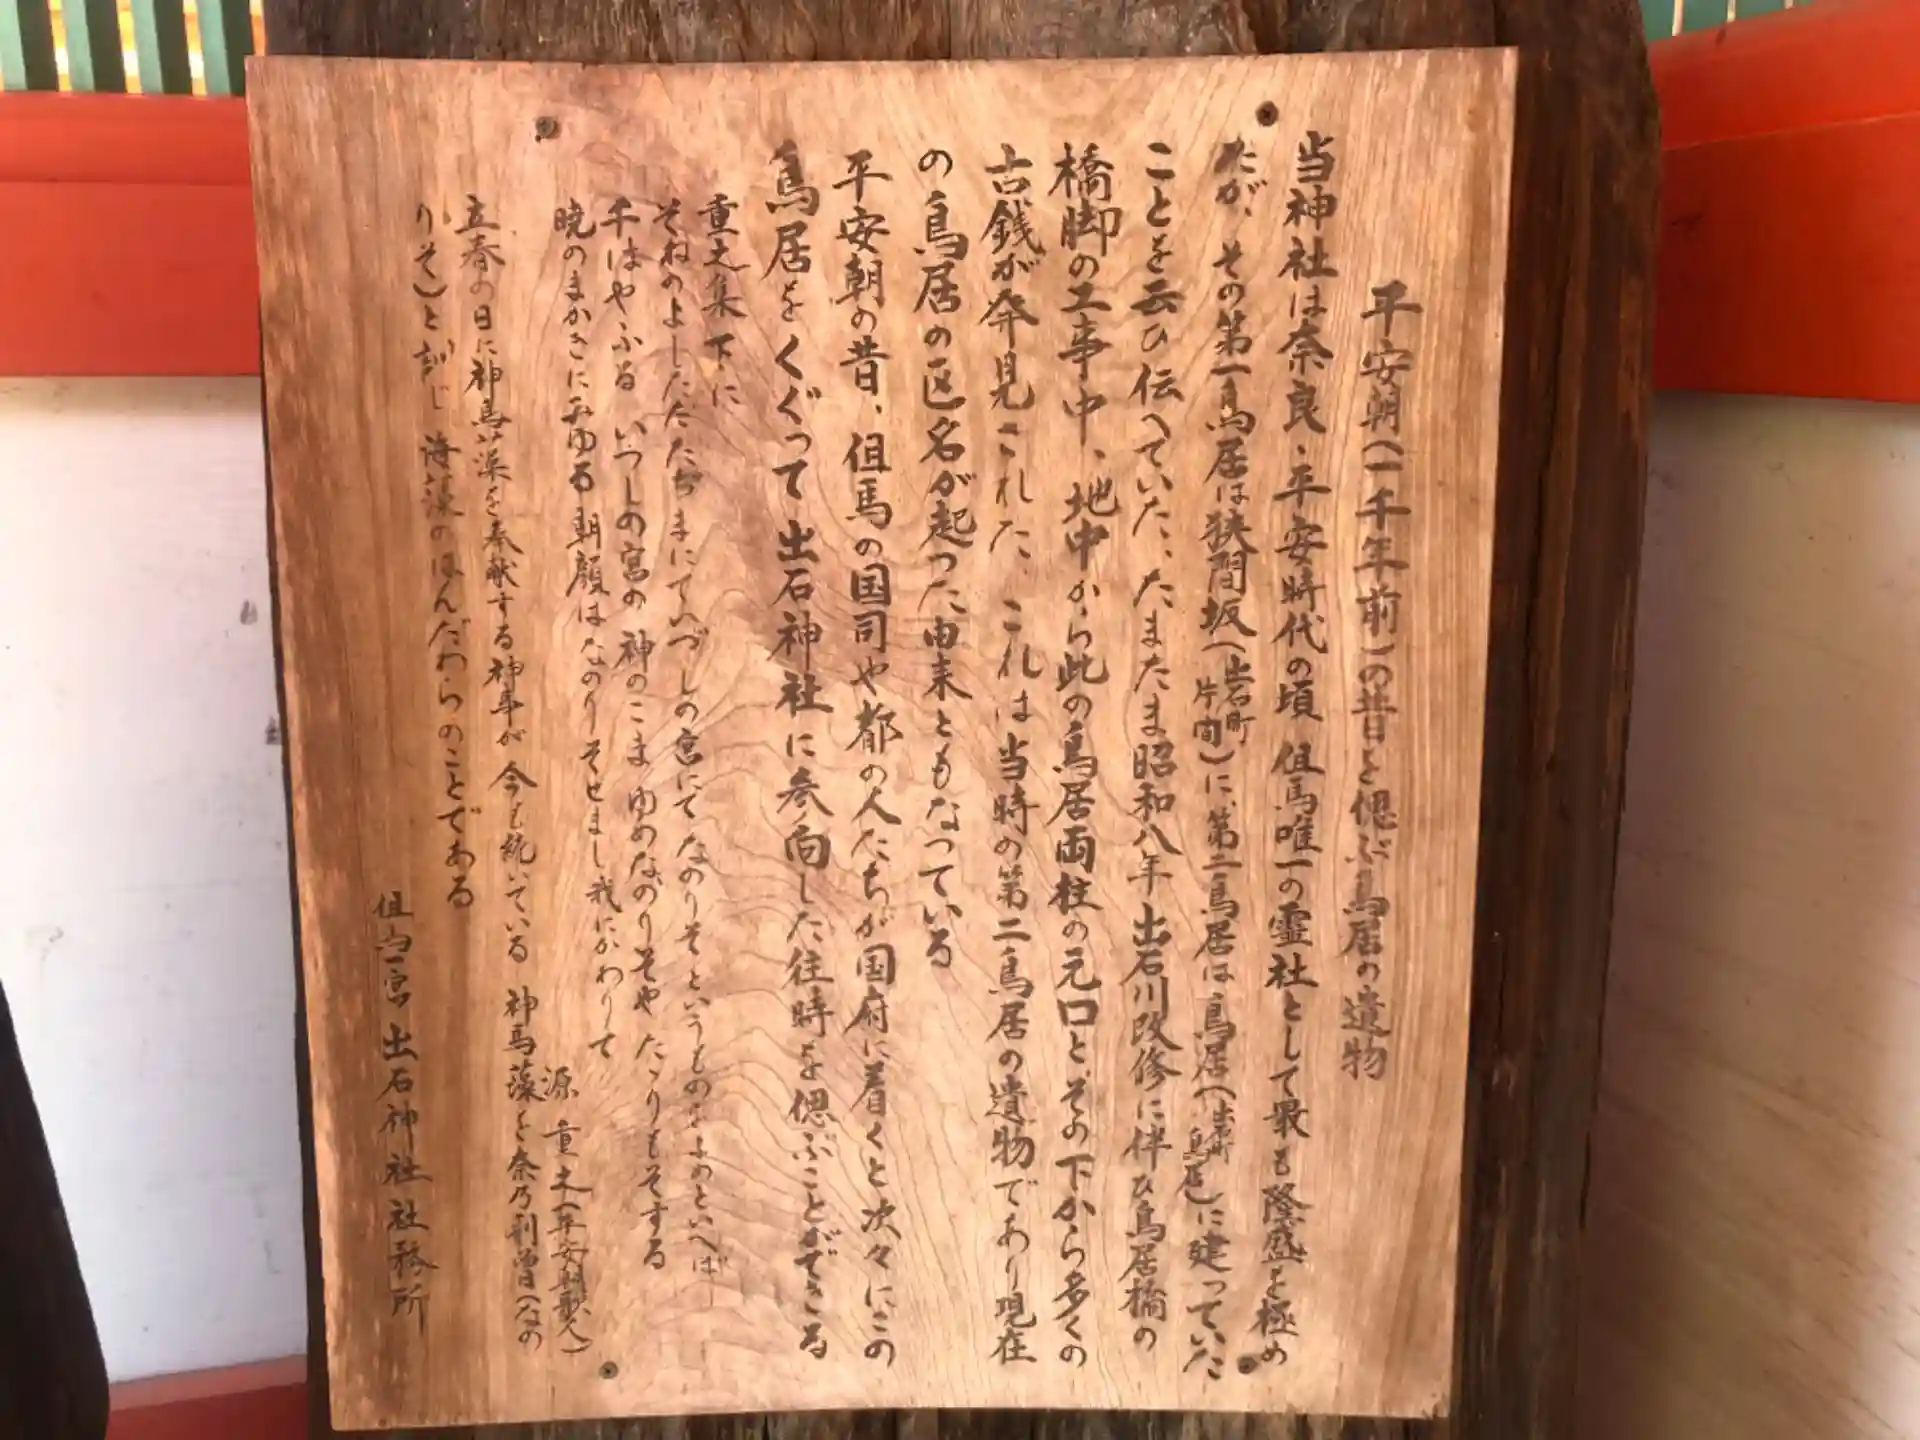 平安朝(一千年前)の昔を偲ぶ鳥居の遺物
当神社は奈良、平安時代の頃 但馬唯一の霊社として最も隆盛を極め
たが、その第一鳥居は狭間坂(出石町片間)に、第二鳥居は鳥居(出石町鳥居)に建っていた
ことを云ひ伝へていた、たまたま昭和八年出石川改修に伴ひ鳥居橋の
橋脚の工事中、地中から此の鳥居両柱の元口と、その下から多くの
古銭が発見された、これは当時の第二鳥居の遺物であり現在
の鳥居の区名が起つた由来ともなつている
平安朝の昔、但馬の国司や都の人たちが国府に着くと次々にこの
鳥居をくぐって出石神社に参向した往時を偲ぶことができる
重之集下に
そねのよしたたたぢまにていづしの宮にてなのりそというものをよめといへば
千はやふる いつしの宮の 神のこま ゆめなのりそや たゝりもそする
暁のまかきにみゆる朝顔は なのりそせまし我にかわりて
源 重之(平安朝歌人)
立春の日に神馬藻を奉献する神事が 今も続いている 神馬藻を奈乃利曽(なの
りそ)と訓じ 海藻のほんだわらのことである
但馬一宮 出石神社社務所